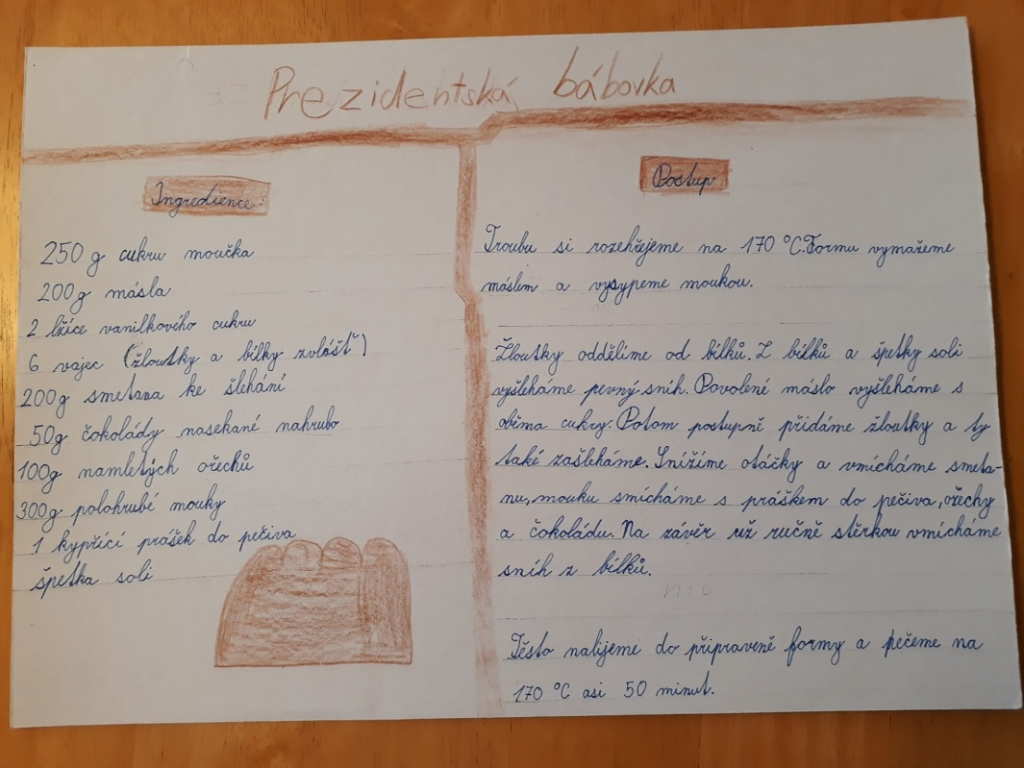 Prezidentská bábovka
Ingredience:
250 g cukru moučka
200g másla
2 lžíce vanilkového cukru
6 vajec (žloutky a bílky zvlášť)
200g smetana ke šlehání
50g čokolády nasekané nahrubo
100g namletých ořechů
300g polohrubé mouky
1 kypřící prášek do pečiva
špetka soli
Postup
Troubu si rozehřejeme na 170 °C. Formu vymažeme
máslem a vysypeme moukou.
Žloutky oddělíme od bílků. Z bílků a špetky soli
vyšleháme pevný sníh. Povolené máslo vyšleháme s
oběma cukry. Potom postupně přidáme žloutky a ty
také zašleháme. Snížíme otáčky a vmícháme smeta-
nu, mouku smícháme s práškem do pečiva, ořechy
a čokoládu. Na závěr už ručně stěrkou vmícháme
sníh z bílků.
Těsto nalijeme do připravené formy a pečeme na
170 °C asi 50 minut.